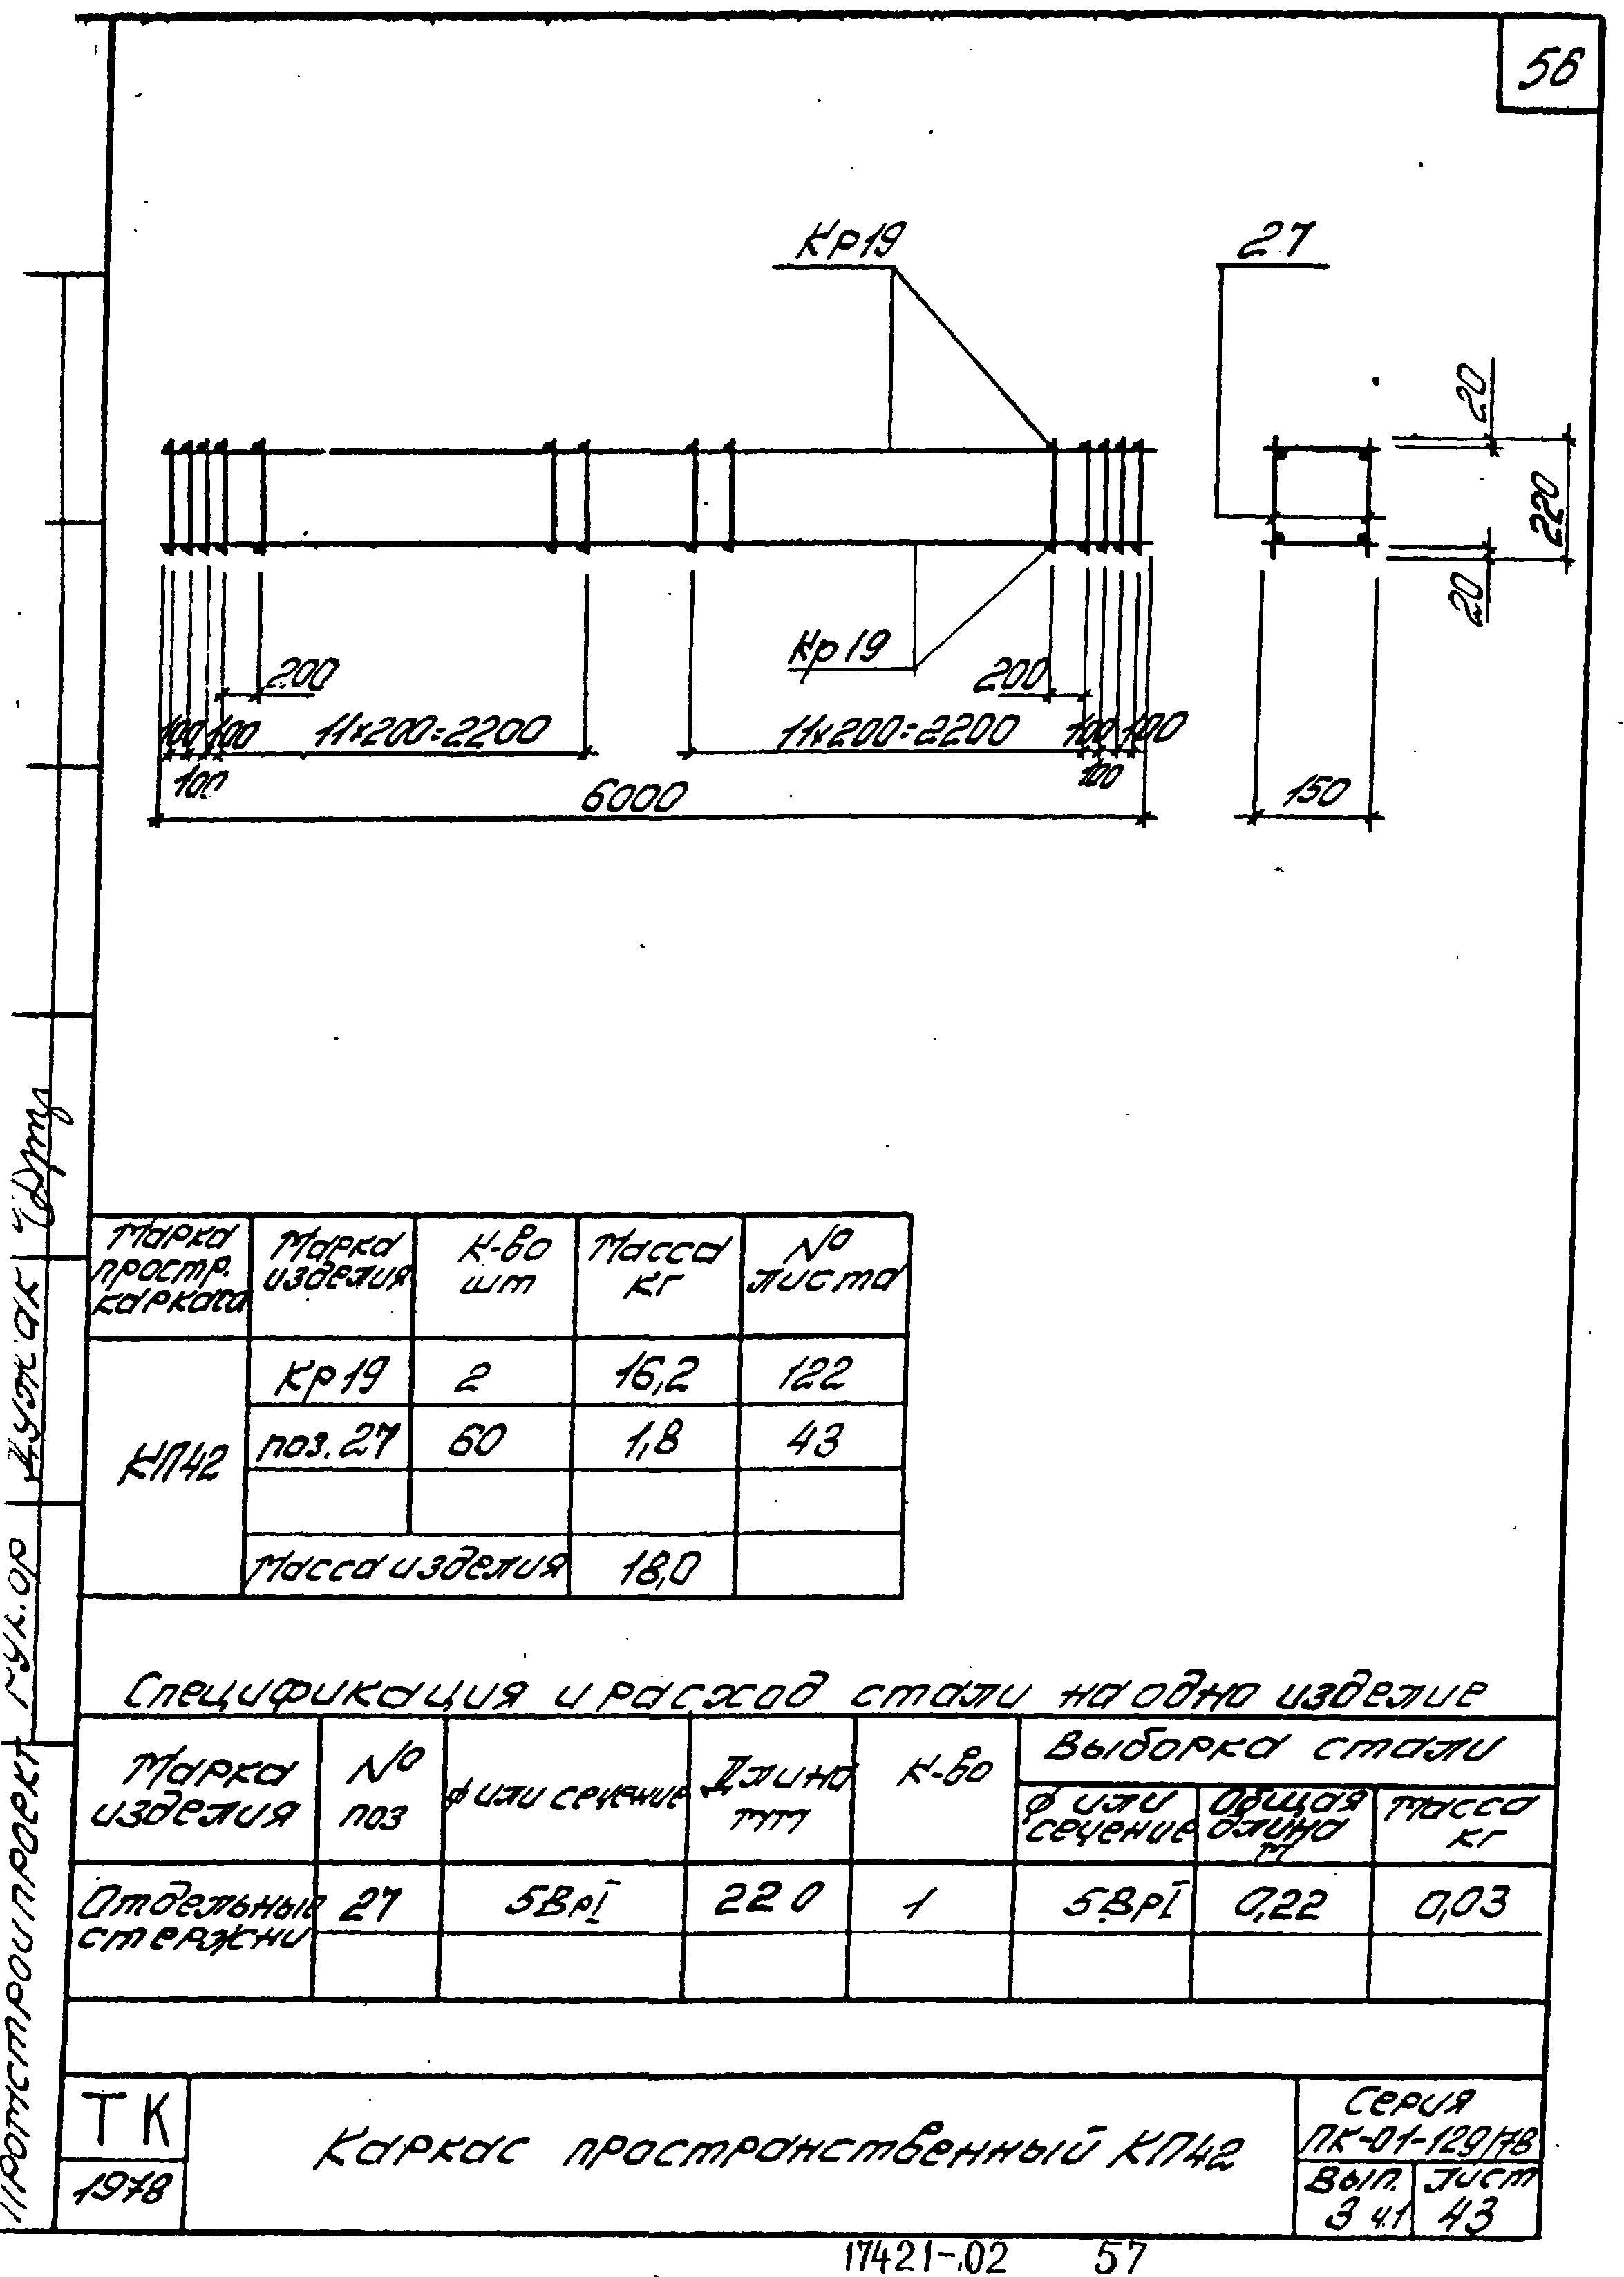 56
Кр19
27
20
220
20
Кр19
200
200
100 100 11×200=2200 11×200=2200 100 100
100 100
6000
150
Марка простр. каркаса Марка изделия К-во шт Масса кг № листа
КП42 Кр19 2 16,2 122
поз. 27 60 1,8 43
Масса изделия 18,0
Спецификация и расход стали на одно изделие
Марка изделия № поз ф или сечение Длина мм К-во Выборка стали
ф или сечение Общая длина м Масса кг
Отдельные стержни 27 5ВрI 220 1 5ВрI 0,22 0,03
ТК
1978
Каркас пространственный КП42
Серия
ПК-01-129/78
Вып. Лист
3 ч.1 43
17421-02 57